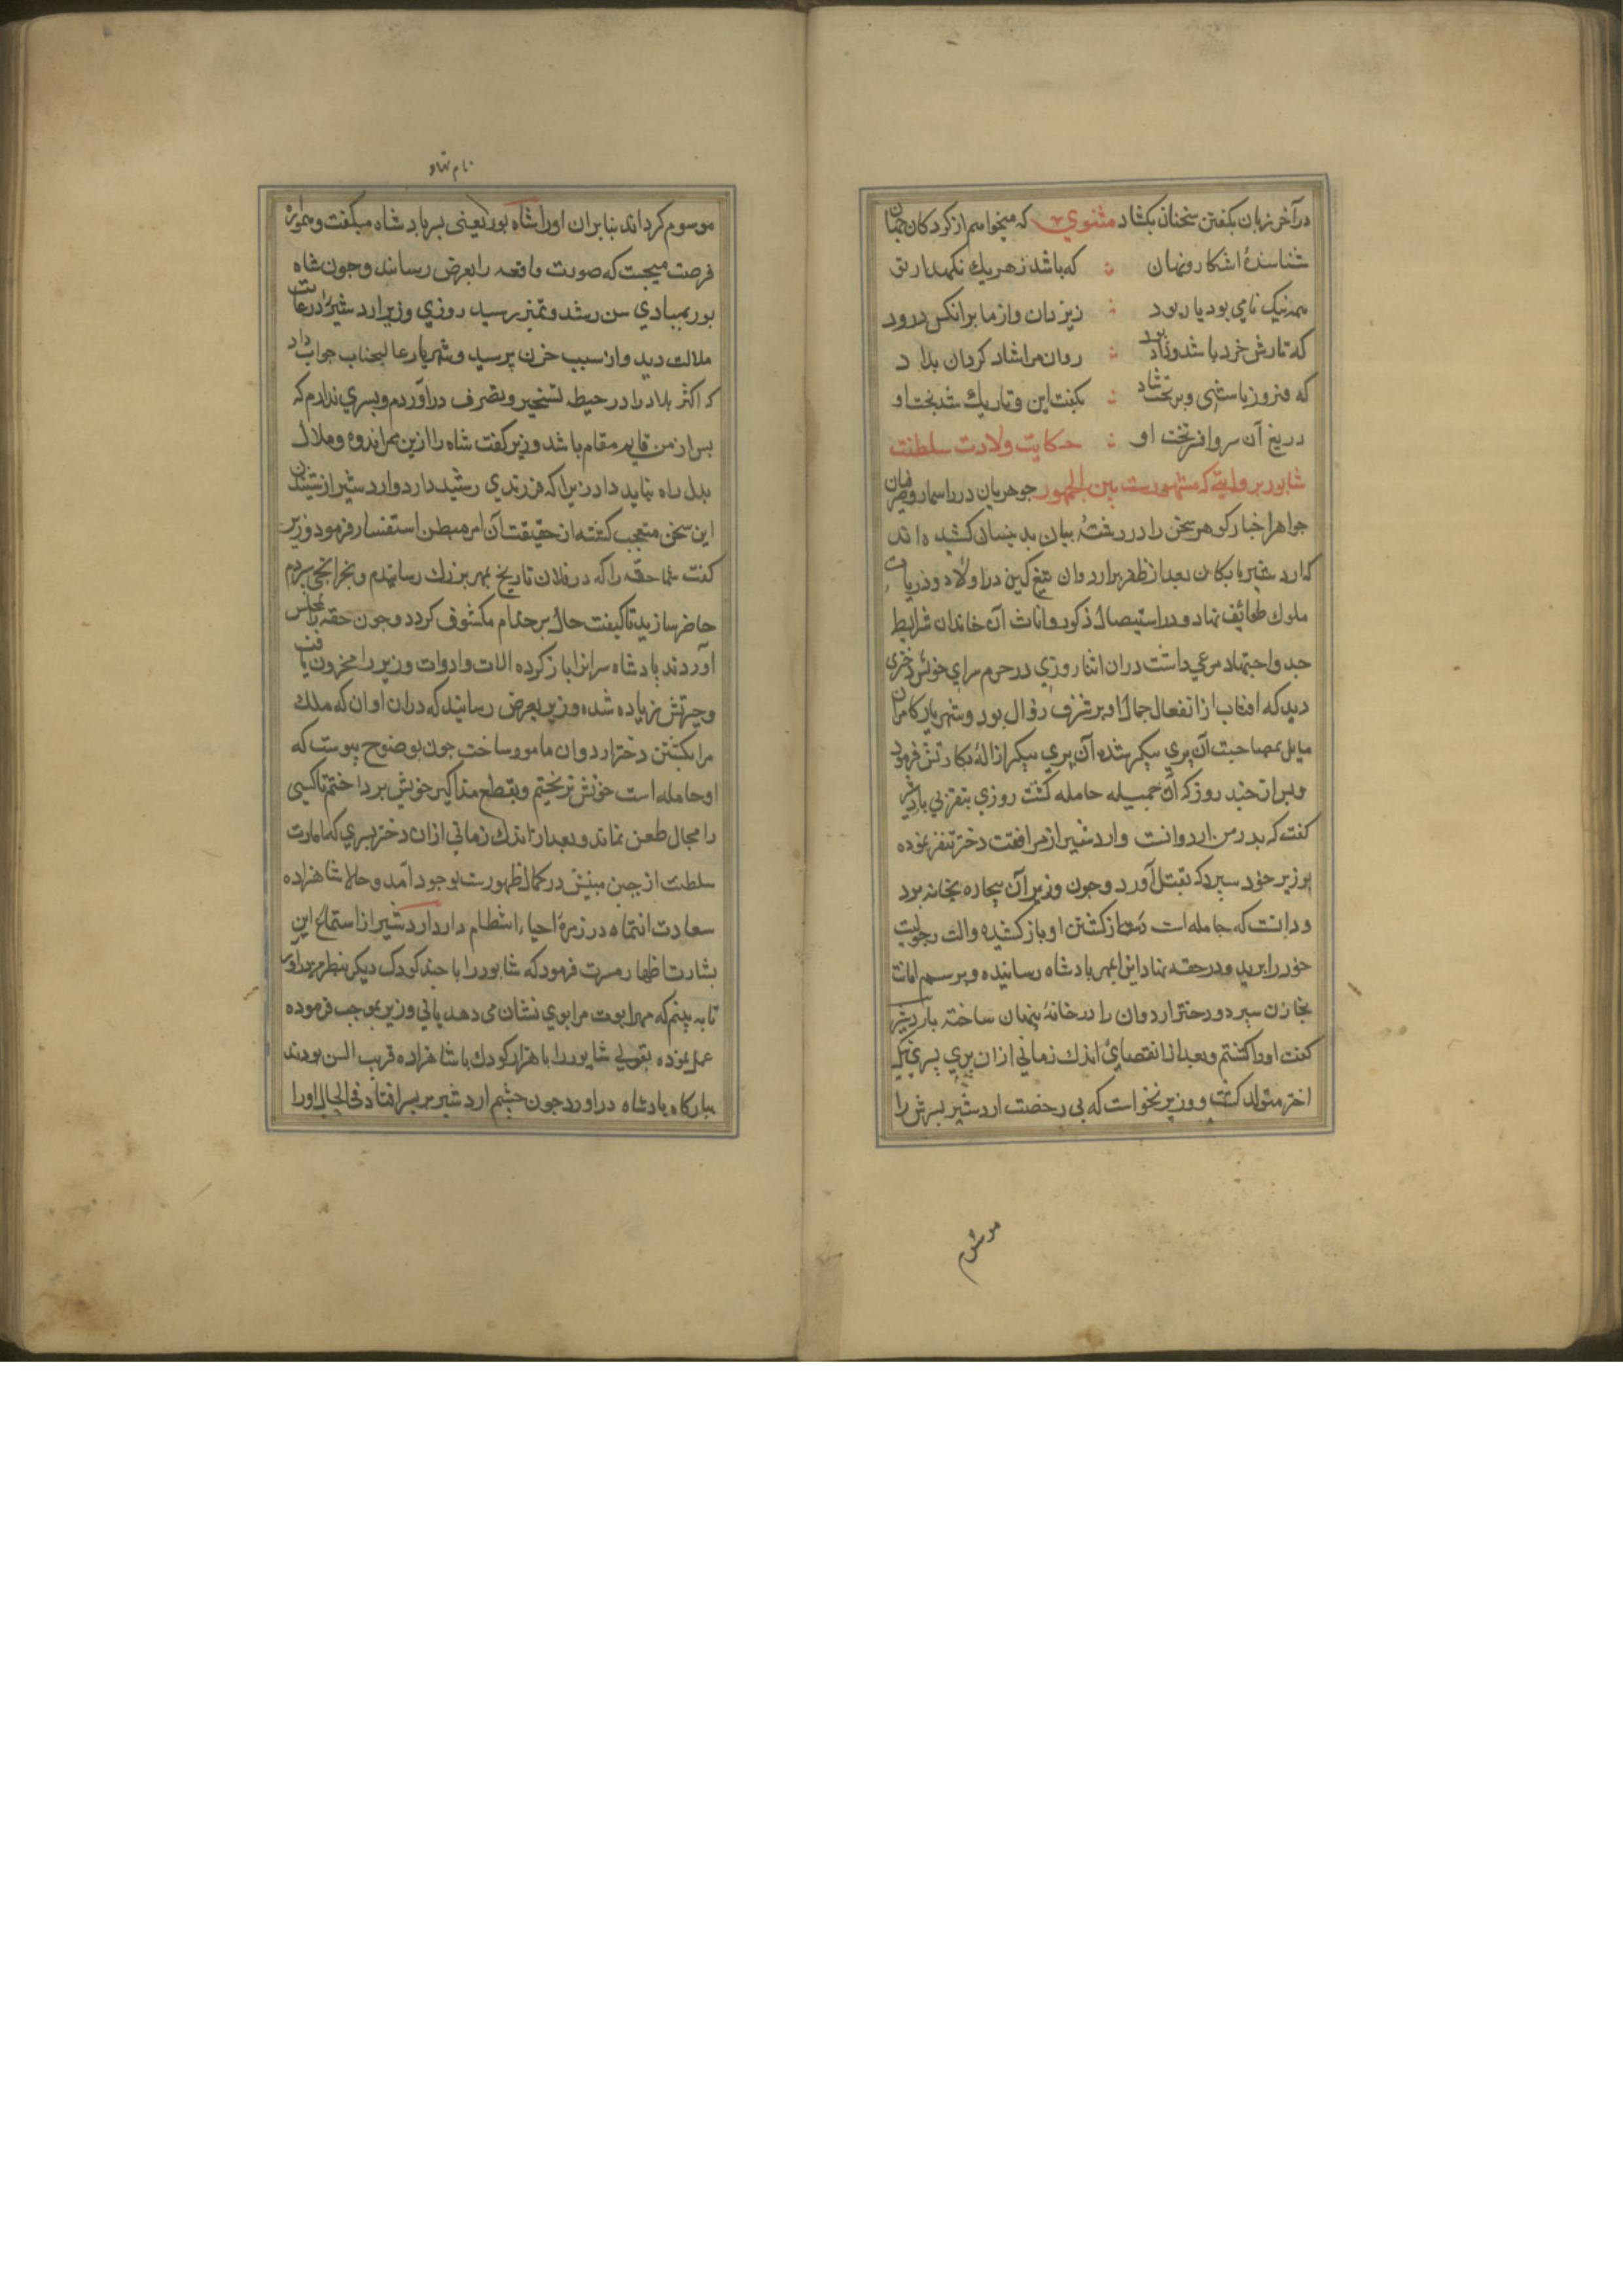 در آخر زبان بکفتن سخنان بکشاد مثنوي که میخواهم از کردکار جهان
شناسندهٔ اشکار و نهان که باشد ز هر یك نکهدارتن
همه نیک نامي بود یار بود ز یزدان و از ما بر انکس درود
که تارش خرد باشد و داد بود روان مرا شاد کردان بداد
که فیروز باشی و بر تخت شاد بکفت این و تاریك شد بخت او
دریغ آن سر و افر و تخت او حکایت ولادت سلطنت
شابور بروایتے که مشهورست بین الجمهور جوهریان در اسمار و صرفان
جواهر اخبار کوهر سخن را در رشتهٔ بیان بدینسان کشیده اند
که اردشیر بابکان بعد از ظفر بر اردوان تیغ کین در اولاد و ذریات
ملوك طوائف نهاد و در استیصال ذکور و اناث آن خاندان شرایط
جد و اجتهاد مرعي داشت در ان اثنا روزي در حرم سراي خوش دختری
دید که افتاب از انفعال جمال او بر شرف زوال بود و شهریار کامران
مایل بمصاحبت آن پري پیکر شده آن پري پیکر ازالهٔ بکارتش فرمود
و بس از چند روز که آن جمیله حامله کشت روزي بتقریبي با اردشیر
کفت که بدر من اردوانست و اردشیر از مرافقت دختر تنفر نموده
بوزیر خود سپرد که بقتل آورد و چون وزیر آن بیچاره بخانه برد
و دانست که حامله است دست از کشتن او باز کشیده و الت رجولیت
خود را برید و در حقه نهاد انرا بمهر بادشاه رسانیده و برسم امانت
بخازن سپرد و دختر اردوان را در خانهٔ پنهان ساخته با اردشیر
کفت او را کشتم و بعد از انقضاي اندك زماني از ان پري پسري نیك
اختر متولد کشت و وزیر نخواست که بی رخصت اردشیر بسرش را
موسوم
نام نهاد
موسوم کرداند بنا بران او را شاه بور یعني بسر بادشاه میکفت و همواره
فرصت میجست که صورت واقعه را بعرض رسانند و جون شاه
بور بمبادي سن رشد و تمیز رسید روزي وزیر اردشیر را در غایت
ملالت دید و از سبب حزن پرسید و شهریار عالیجناب جواب داد
که اکثر بلاد را در حیطه تسخیر و تصرف در آوردم و بسري ندارم که
بس از من قایم مقام باشد وزیر کفت شاه را ازین ممر اندوه و ملال
بدل راه نباید داد زیرا که فرزندي رشید دارد و اردشیر از شنیدن
این سخن متعجب کشته از حقیقت آن امر مبطن استفسار فرمود وزیر
کفت شما حقه را که در فلان تاریخ بمهر بزرك رسانیدم و بخزانجي بردم
حاضر سازید تا کیفیت حال بر حکام مکشوف کردد و جون حقه بمجلس
آوردند پادشاه سر انرا باز کرده الات و ادوات وزیر را مخزون یافت
و حیرتش زیاده شده وزیر بعرض رسانید که در ان اوان که ملك
مرا بکشتن دختر اردوان مامور ساخت جون بوضوح پیوست که
او حامله است خونش نریختم و بقطع مذاکیر خویش برداختم تا کسی
را مجال طعن نماند و بعد از اندك زماني از ان دختر بسري که امارت
سلطنت از جبین مبینش در کمال ظهورست بوجود آمد و حالا شاهزاده
سعادت انتماه در زمرهٔ احیاء انتظام دارد اردشیر از استماع این
بشارت اظهار مسرت فرمود که شابور را با جند کودك دیکر بنظرم در اور
تا به بینم که مهر ابوت مرا بوي نشان مي دهد یا ني وزیر بموجب فرموده
عمل نموده بقولي شابور را با هزار کودك با شاهزاده قریب السن بودند
ببارکاه بادشاه در اورد جون جشم اردشیر بر بسر افتاد في الحال او را